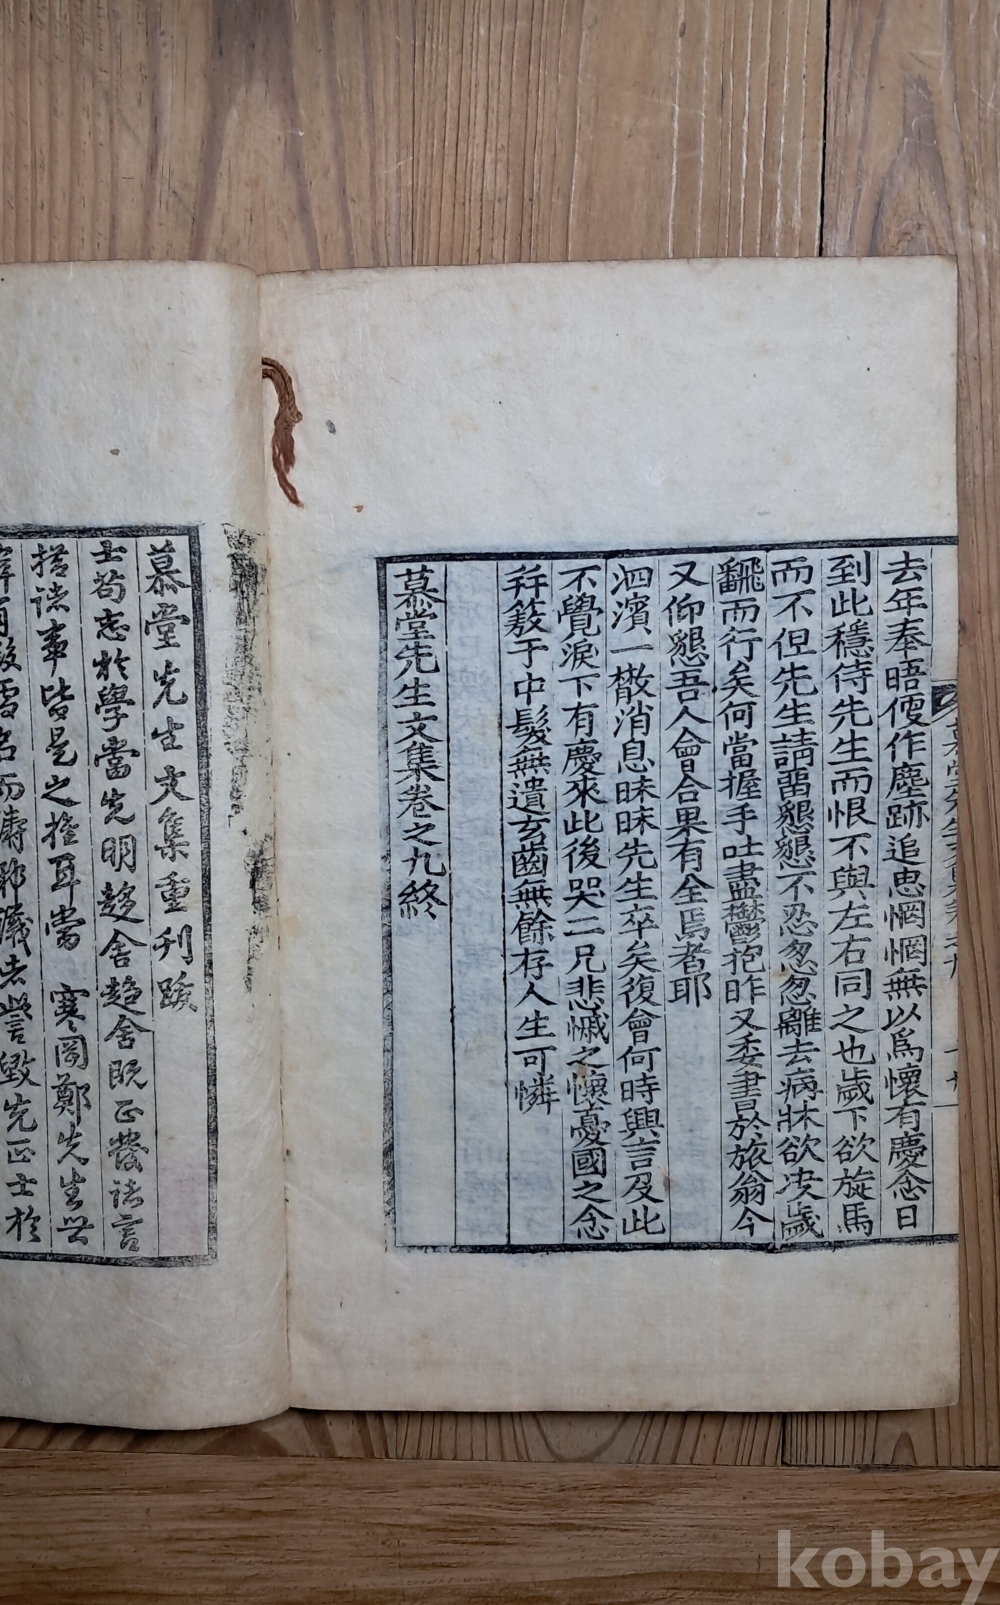 去年奉晤便作塵跡追思惘惘無以爲懷有慶念日
到此穩侍先生而恨不與左右同之也歲下欲旋馬
而不但先生請畱懇懇不忍怱怱離去病牀欲决歲
飜而行矣何當握手吐盡鬱抱昨又委書於旅翁今
又仰懇吾人會合果有全焉者耶
泗濱一散消息昧昧先生卒矣復會何時興言及此
不覺淚下有慶來此後哭二兄悲慽之懷憂國之念
幷簇于中髮無遺玄齒無餘存人生可憐
慕堂先生文集卷之九終
慕堂先生文集重刊跋
士苟志於學當先明趍舍趍舍旣正發諸言
措諸事皆是之推耳當 寒岡鄭先生世
kobay